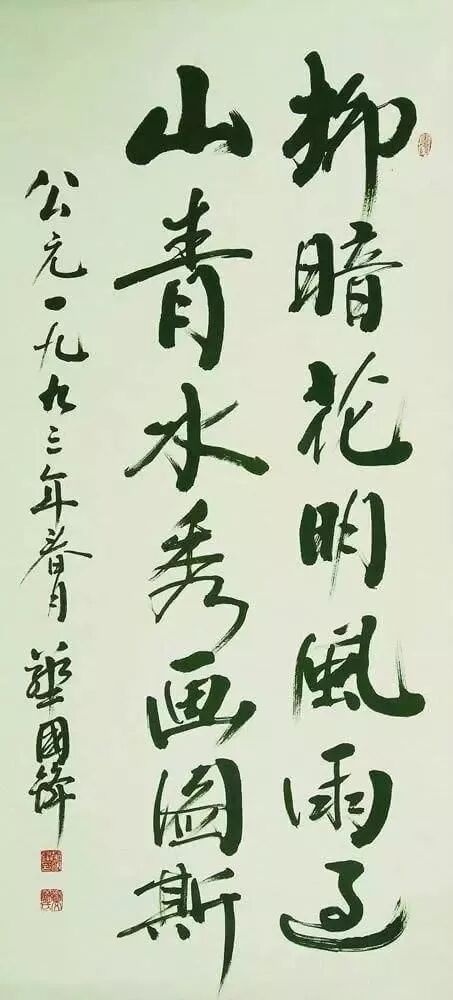 柳暗花明風雨過
山青水秀画圖斯
公元一九九三年春月
華國鋒